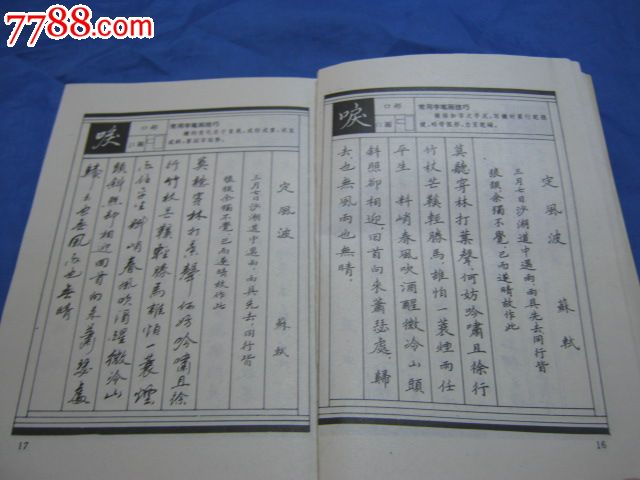 7788.com
唳
口部
常用字笔画技巧
定風波 蘇軾
三月七日沙湖道中遇雨雨具先去同行皆
狼狽余獨不覺已而遂晴故作此
莫聽穿林打葉聲,何妨吟嘯且徐行
竹杖芒鞋輕勝馬誰怕一蓑煙雨任
平生 料峭春風吹酒醒微冷山頭
斜照卻相迎回首向來蕭瑟處歸
去也無風雨也無晴
16
唳
口部
常用字笔画技巧
定風波 蘇軾
三月七日沙湖道中遇雨雨具先去同行皆
狼狽余獨不覺已而遂晴故作此
莫聽穿林打葉聲 何妨吟嘯且徐
行竹杖芒鞋輕勝馬誰怕一蓑煙
雨任平生料峭春風吹酒醒微冷山
頭斜照卻相迎回首向來蕭瑟處
歸去也無風雨也無晴
17